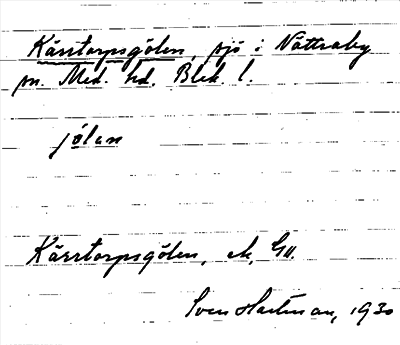 Kärrtorpsgölen, sjö i Nättraby
sn. Med. hd. Blek. l.
jölan
Kärrtorpsgölen, ek, GII.
Sven Hartman, 1930